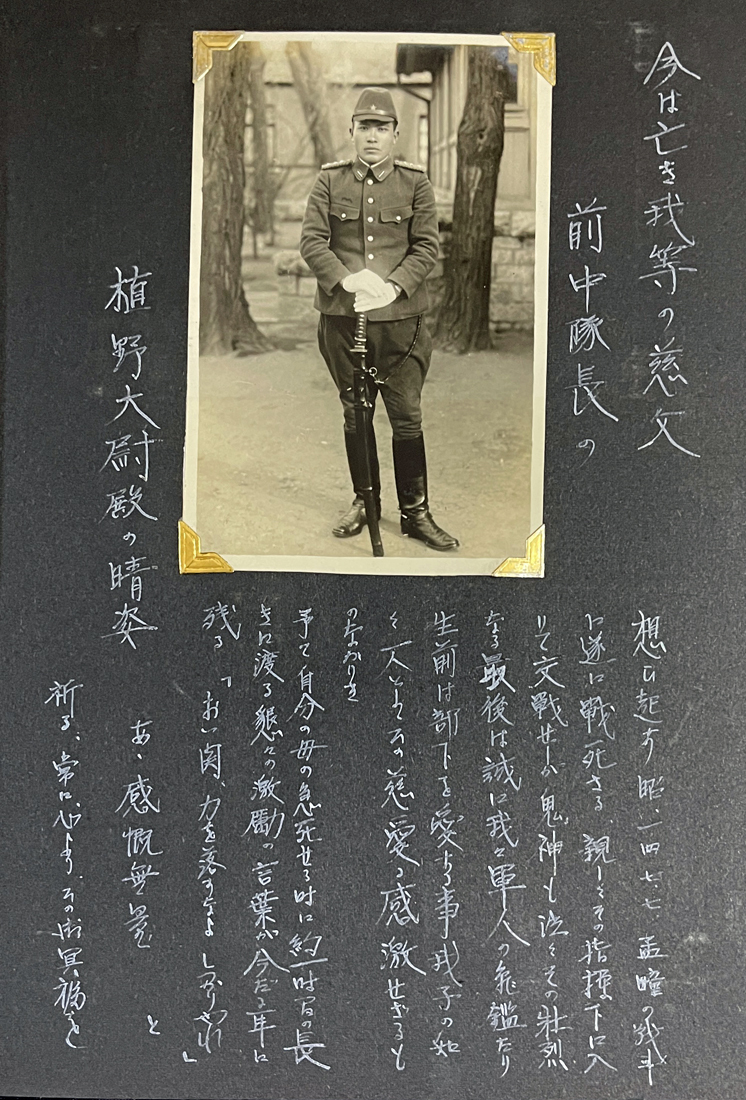 今は亡き我等の慈父
前中隊長の
植野大尉殿の晴姿
想ひ起す昭、一四、七、七 孟疃の戦斗
に遂に戦死さる、親しくその指揮下に入
りて交戦せしが鬼神も泣くその壮烈
なる最後は誠に我々軍人の亀鑑たり
生前は部下を愛する事我子の如
く一人としてその慈愛に感激せざるも
のなかりき
予て自分の母の急死せる時に約一時間の長
きに渡る懇々の激励の言葉が今だに耳に
残る「おい関、力を落すなよしっかりやれ」
あゝ感慨無量 と
祈る、常に心より、その御冥福を